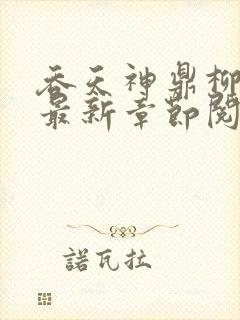 吞天神鼎柳
最新章節閱
諾瓦拉